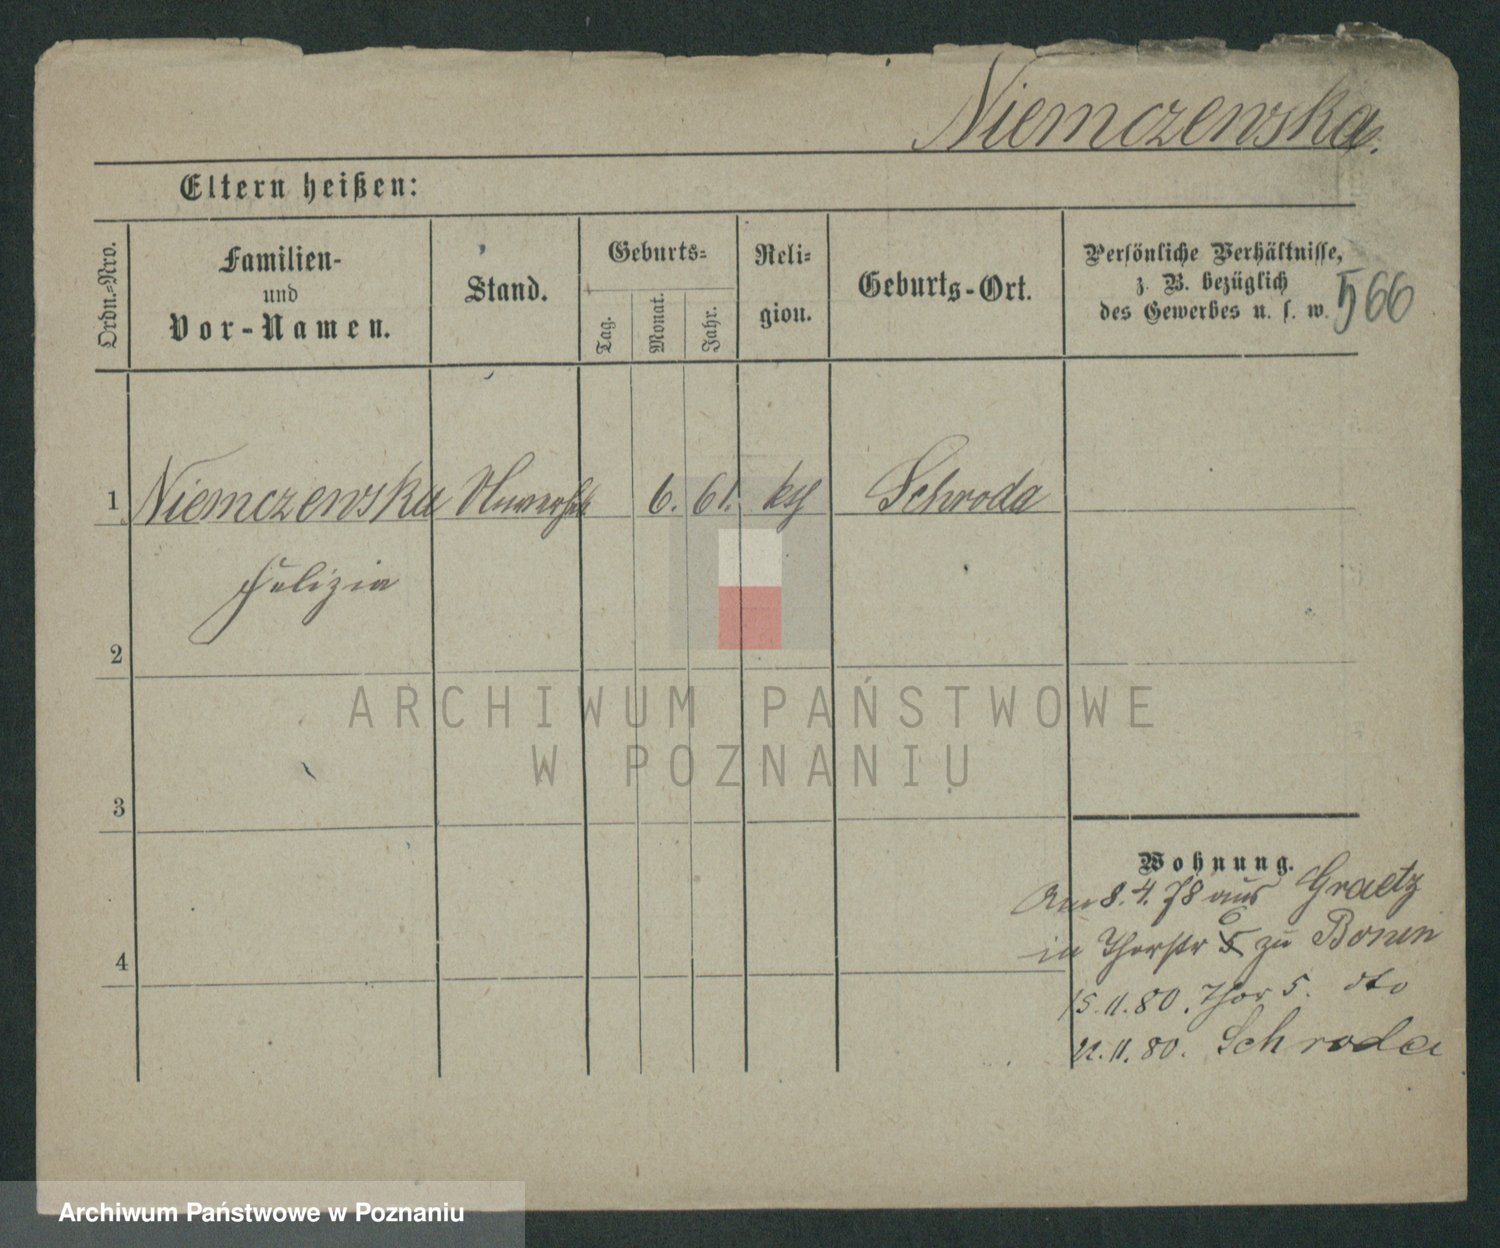 Niemczewska.
Eltern heißen:
Ordn.=Nro.
Familien-
und
Vor-Namen.
Stand.
Geburts=
Tag.
Monat.
Jahr.
Reli-
gion.
Geburts-Ort.
Persönliche Verhältnisse,
z. B. bezüglich
des Gewerbes u. s. w.
566
1 Niemczewska Unverh 6. 61. kth Schroda
Felizia
2
3
4
Wohnung.
Am 8.4.78 aus Graetz
in Thorstr 5 6 zu Bonin
15.11.80. Thor 5. dto
22.11.80. Schroda
ARCHIWUM PAŃSTWOWE
W POZNANIU
Archiwum Państwowe w Poznaniu